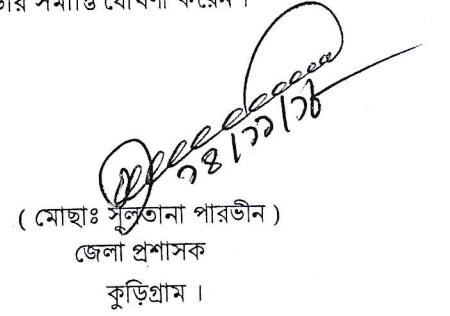 সমাপ্তি ঘোষণা করেন।
( মোছাঃ সুলতানা পারভীন )
জেলা প্রশাসক
কুড়িগ্রাম ।